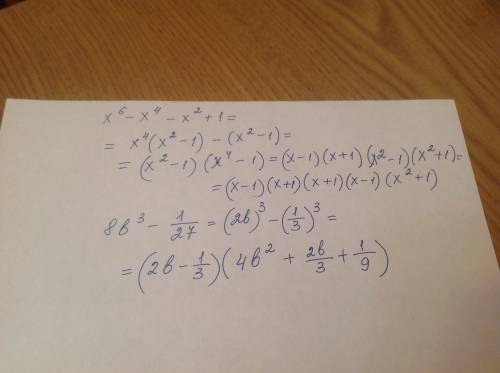 x⁶ - x⁴ - x² + 1 =
= x⁴(x² - 1) - (x² - 1) =
= (x² - 1)(x⁴ - 1) = (x - 1)(x + 1)(x² - 1)(x² + 1) =
= (x - 1)(x + 1)(x + 1)(x - 1)(x² + 1)
8b³ - 1/27 = (2b)³ - (1/3)³ =
= (2b - 1/3)(4b² + 2b/3 + 1/9)